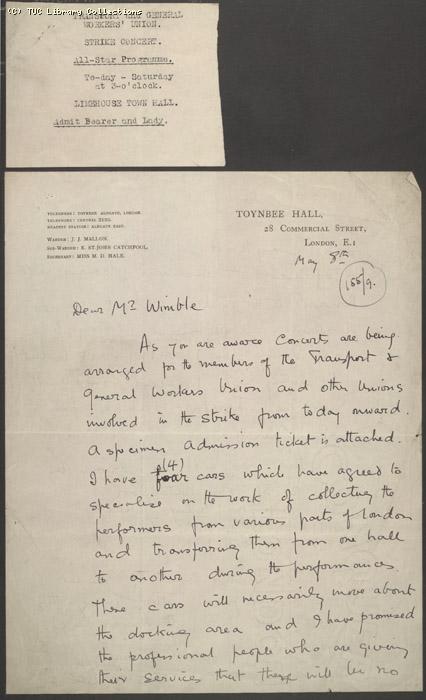 © TUC Library Collections
TRANSPORT AND GENERAL
WORKERS' UNION.
STRIKE CONCERT.
All-Star Programme.
To-day - Saturday
at 3-o'clock.
LIMEHOUSE TOWN HALL.
Admit Bearer and Lady.
TELEGRAMS: TOYNBEE ALDGATE, LONDON.
TELEPHONE: CENTRAL
NEAREST STATION: ALDGATE EAST.
WARDEN: J. J. MALLON.
SUB-WARDEN: E. ST JOHN CATCHPOOL.
SECRETARY: MISS M. D. HALE.
TOYNBEE HALL,
28 COMMERCIAL STREET,
LONDON, E.1
May 8th
Dear Mr Wimble
As you are aware Concerts are being
arranged for the members of the Transport &
General Workers Union and other Unions
involved in the strike from today onward.
A specimen admission ticket is attached.
I have four (4) cars which have agreed to
specialise on the work of collecting the
performers from various parts of London
and transferring them from one hall
to another during the performances
These cars will necessarily move about
the docking area and I have promised
the professional people who are giving
their services that there will be no